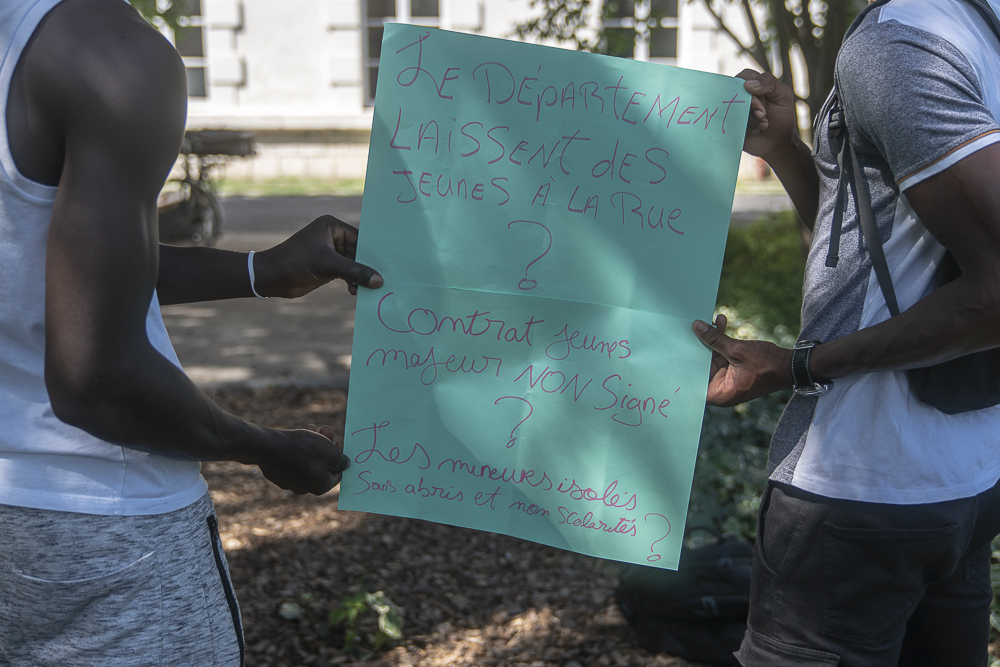 Le Département
Laissent des
jeunes à la rue
?
Contrat jeunes
majeur non signé
?
Les mineurs isolés
sans abris et non scolarités ?